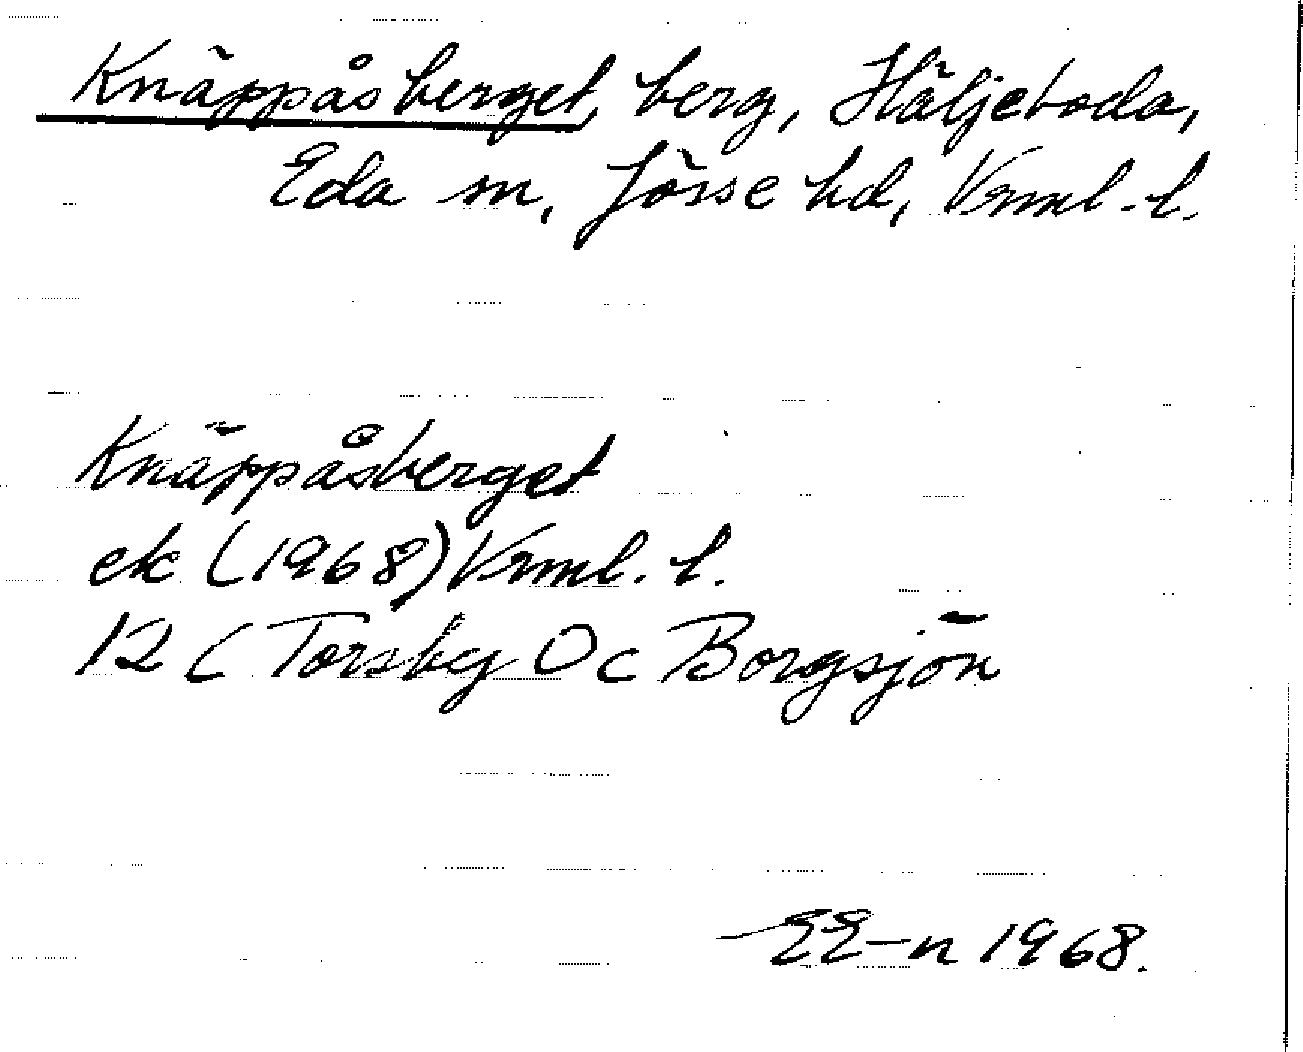 Knäppåsberget, berg, Häljeboda,
Eda sn, Jösse hd, Vrml. l.
Knäppåsberget
ek (1968) Vrml. l.
12 C Torsby 0c Borgsjön
EE-n 1968.